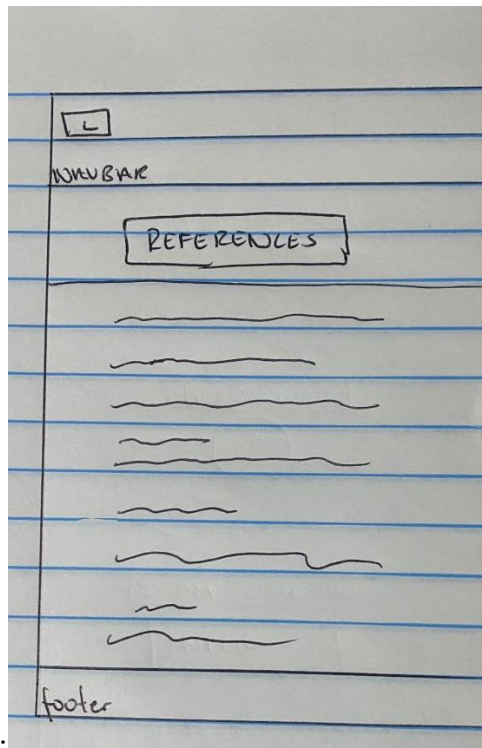 L
NAVBAR
REFERENCES
footer